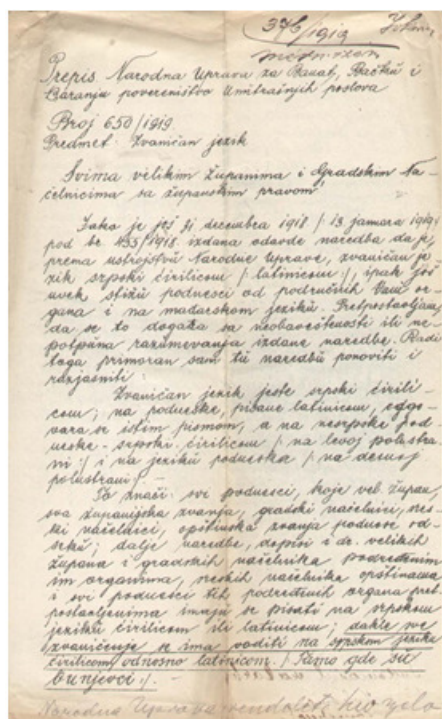 376/1919
Prepis. Narodna Uprava za Banat, Bačku i
Baranju povereništvo Unutrašnjih poslova
Broj 650/1919
Predmet: Zvaničan jezik
Svima velikim Županima i Gradskim Na-
čelnicima sa županskim pravom!
Iako je još 31 decembra 1918 / 13 januara 1919
pod br 435/1918 izdana odavde naredba da je,
prema ustrojstvu Narodne Uprave, zvaničan je-
zik srpski ćirilicom /: latinicom :/, ipak još
uvek stižu podnesci od područnih Vam or-
gana i na mađarskom jeziku. Pretpostavljam,
da se to događa sa neobaveštenosti ili ne-
potpuna razumevanja izdane naredbe. Radi
toga primoran sam tu naredbu ponoviti i
razjasniti:
Zvaničan jezik jeste srpski ćirili-
com; na podneske, pisane latinicom, odgo-
vara se istim pismom, a na nesrpske pod-
neske - srpski ćirilicom /: na levoj polustra-
ni :/ i na jeziku podneska /: na desnoj
polustrani :/. -
To znači: svi podnesci, koje vel. župan,
sva županijska zvanja, gradski načelnici, sres-
ki načelnici, opštinska zvanja podnose od-
seku; dalje naredbe, dopisi i dr. velikih
župana i gradskih načelnika podređenim
im organima, sreskih načelnika opštinama
i svi podnesci tih podređenih organa pret-
postavljenima imaju se pisati na srpskom
jeziku ćirilicom ili latinicom; dakle sve
zvanično se ima voditi na srpskom jeziku
ćirilicom, odnosno latinicom. /: Tamo gde su
bunjevci :/. -
Narodna Uprava rendelete hiv